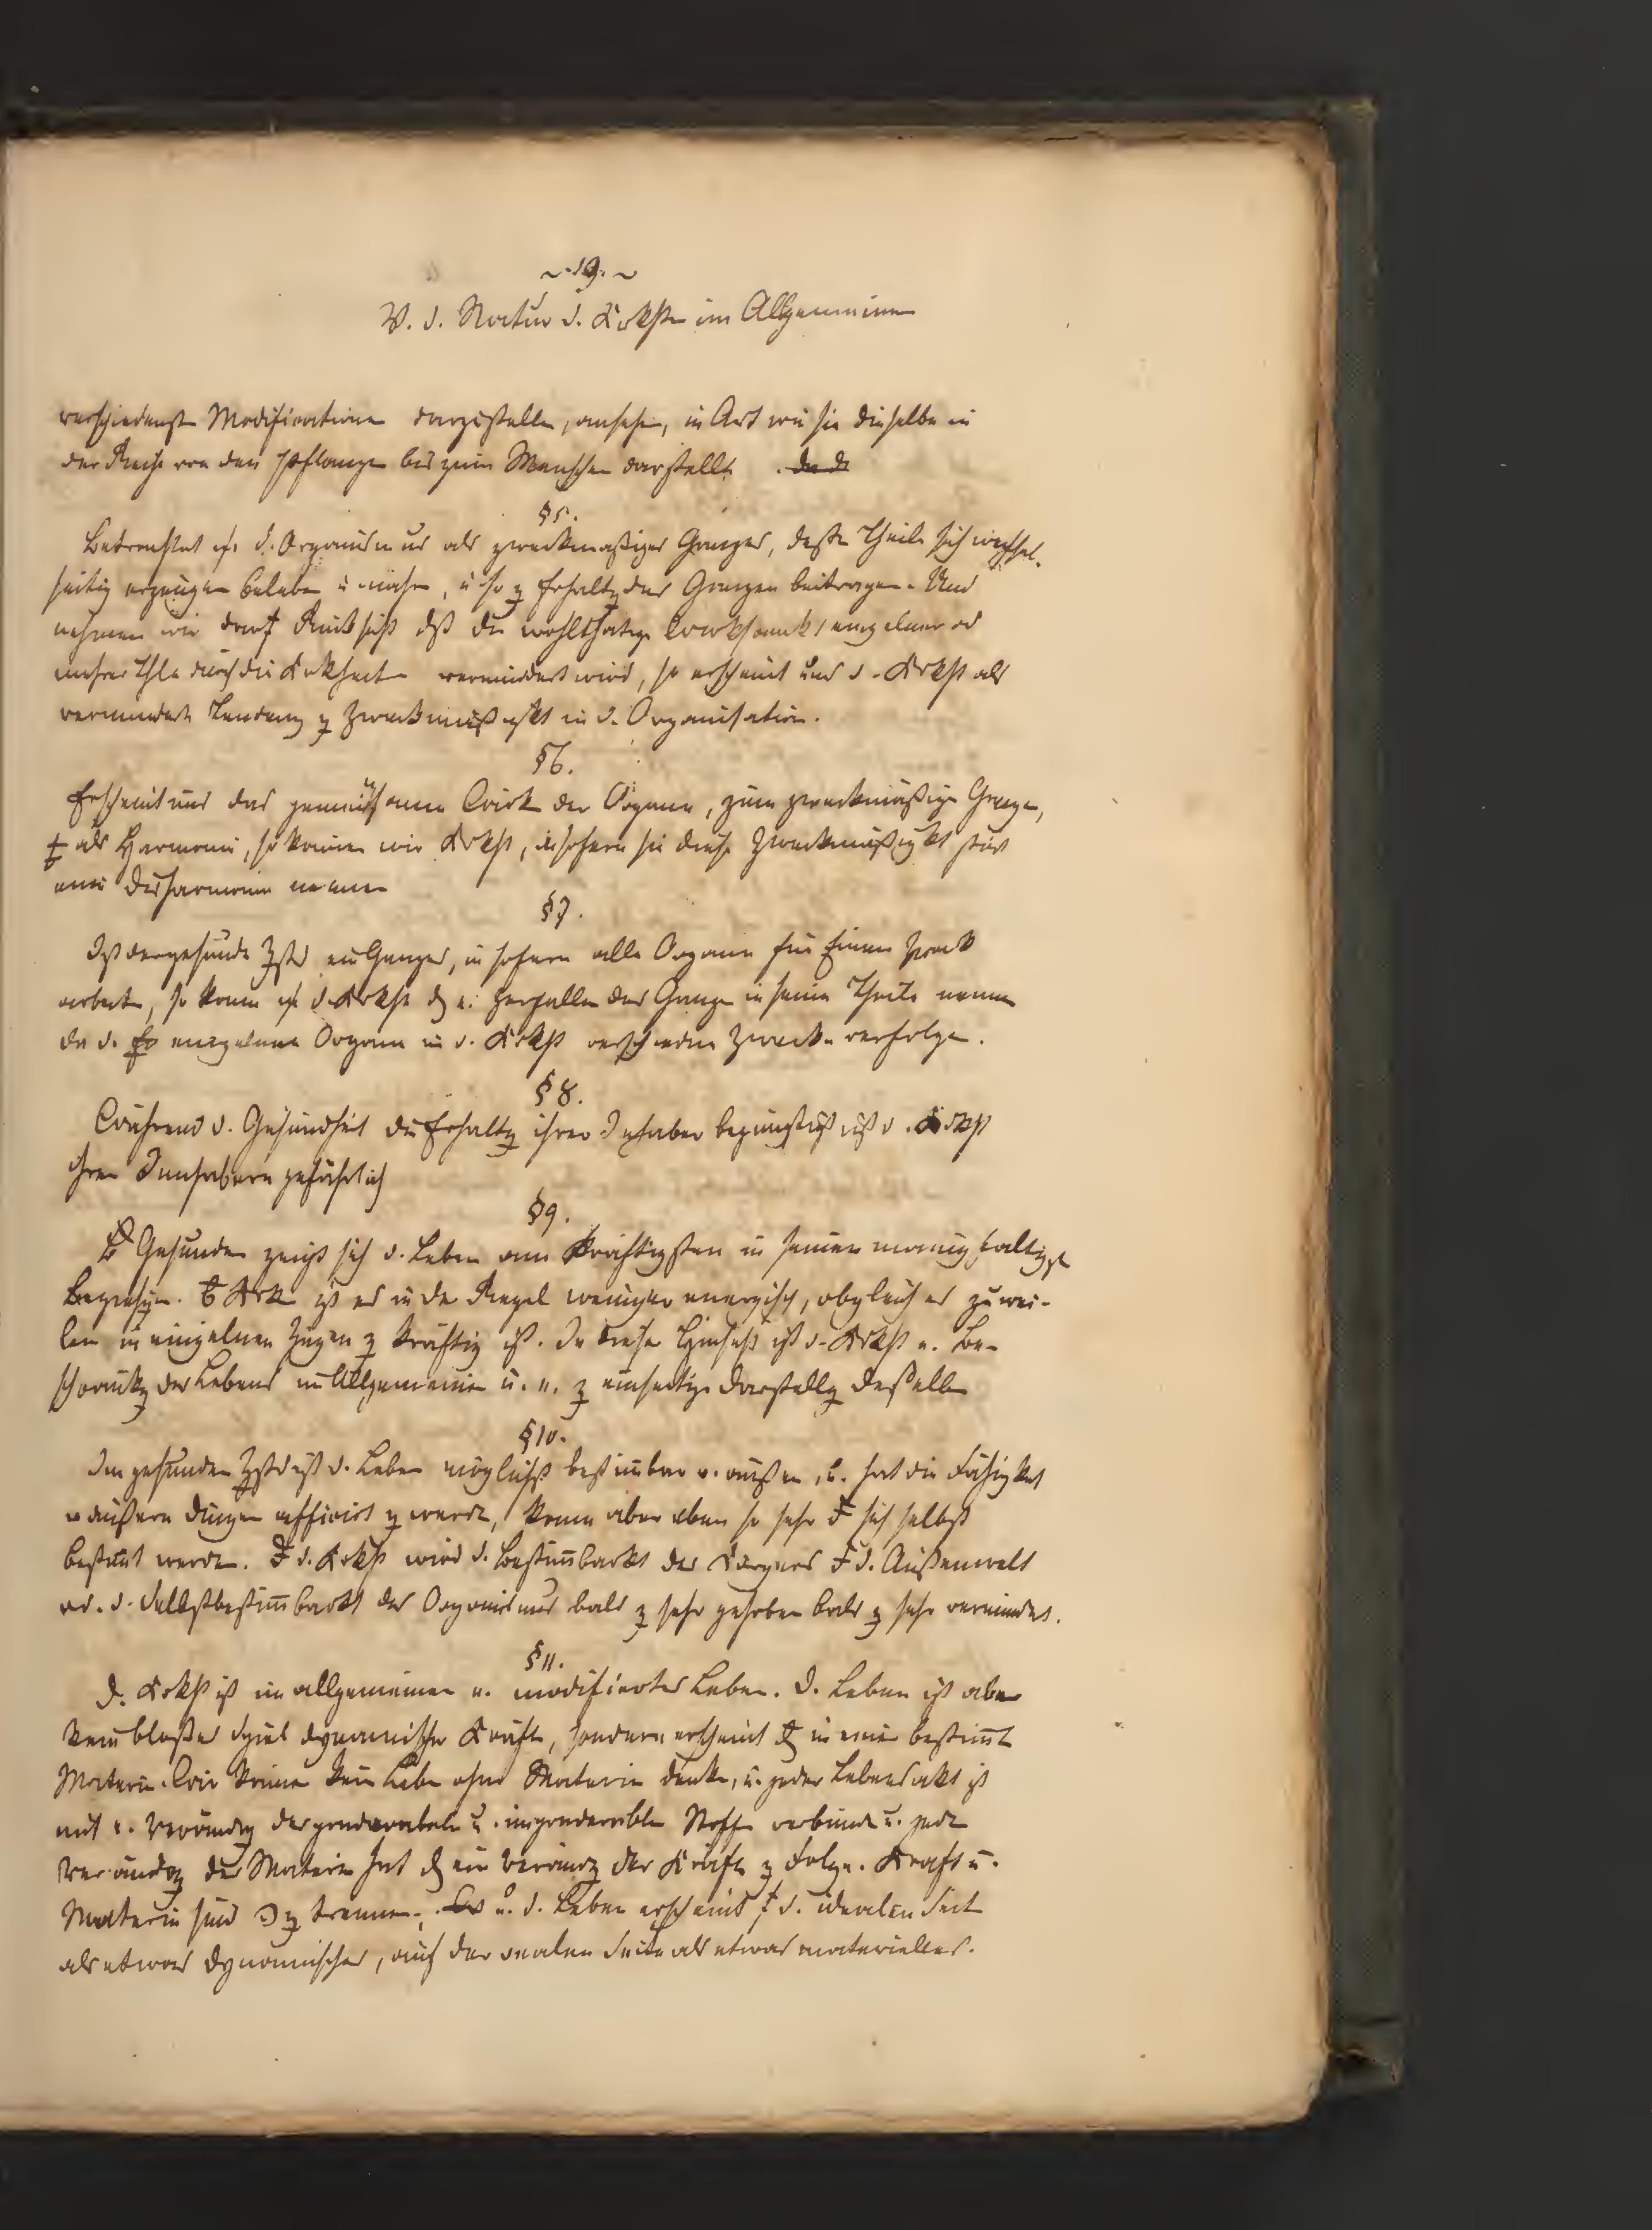 ~ · 19. ~
V. d. Natur d. Krkht im Allgemeinen
verschiedenste Modificationen darzustellen, ansehen, in Art wie sie dieselbe in
der Reihe von den Pflanzen bis zum Menschen darstellt.
§ 5.
Betrachtet d. Organismus als zweckmäßiges Ganzes, deßen Theile sich wechsel-
seitig erzeugen beleben u nähren, u so z Erhaltg des Ganzen beitragen. Und
nehmen wir Rücksicht dß die wohlthätige Wirksamkt einzelner od
mehrer Thle durch die Krkheit vermindert wird, so erscheint uns d. Krkht als
verminderte Tendenz z Zweckmäßigkt in d. Organisation.
§ 6.
Erscheint uns das gemeinsame Wirken der Organe, zum zweckmäßigen Ganzen,
als Harmonie, so können wir Krkht, insofern sie diese Zweckmäßigkt stört
eine Disharmonie nennen
§ 7.
Ist der gesunde Zstd ein Ganzes, in sofern alle Organe für Einen Zweck
arbeiten, so kann d. Krkht e. Zerfallen des Ganzen in seine Theile nennen
da d. einzelnen Organe in d. Krkht verschiedene Zwecke verfolgen.
§ 8.
Während d. Gesundheit die Erhaltg ihrer Inhaber begünstigt ist d. Krkht
ihren Innhabern gefährlich
§ 9.
Gesunden zeigt sich d. Leben am kräftigsten in seinen mannigfaltigst
Beziehgen. Krken ist es in der Regel weniger energisch, obgleich es zuwei-
len in einzelnen Zügen z kräftig ist. In dieser Hinsicht ist d. Krkht e. Be-
schränkg des Lebens im Allgemeinen u. e. z einseitige Darstellg deßelben
§ 10.
Im gesunden Zstd ist d. Leben möglichst bestimbar v. außen, u. hat die Fähigkt
v äußern Dingen afficirt z werden, kann aber eben so sehr sich selbst
bestimt werden. d. Krkht wird d. Bestimbarkt des Körpers d. Außenwelt
od. d. Selbstbestimbarkt des Organismus bald z sehr gehoben bald z sehr vermindert.
§ 11.
D. Krkht ist im allgemeinen e. modifiertes Leben. D. Leben ist aber
kein bloßes Spiel dynamischer Kräfte, sondern erscheint in einer bestimt
Materie. Wir können kein Leben ohne Materie denken, u. jeder Lebensakt ist
mit e. Verändrg der ponderabeln u. imponderablen Stoffe verbunden u. jede
Verändrg der Materie hat ein Verändrg der Kräfte z Folge. Kraft u.
Materie sind z trennen. u. d. Leben erscheint d. idealen Seite
als etwas dynamisches, auf der realen Seite als etwas materielles.